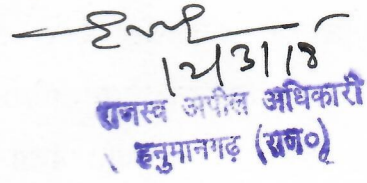 12/3/18
राजस्व अपील अधिकारी
हनुमानगढ़ (राज०)